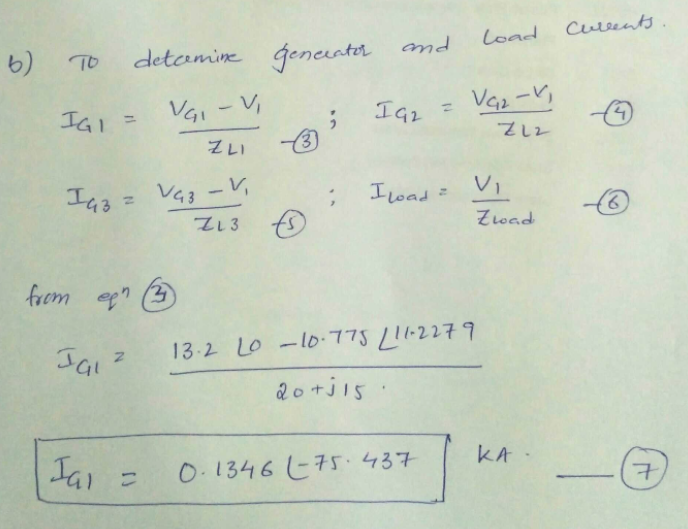 b) To determine generator and load currents.
IG1 = VG1 - V1 / ZL1 -③ ; IG2 = VG2 - V1 / ZL2 -④
IG3 = VG3 - V1 / ZL3 -⑤ ; Iload = V1 / Zload -⑥
from eqn ③
IG1 = 13.2 ∠0 - 10.775 ∠11.2279 / 20 + j15.
IG1 = 0.1346 ∠-75.437 KA. — ⑦